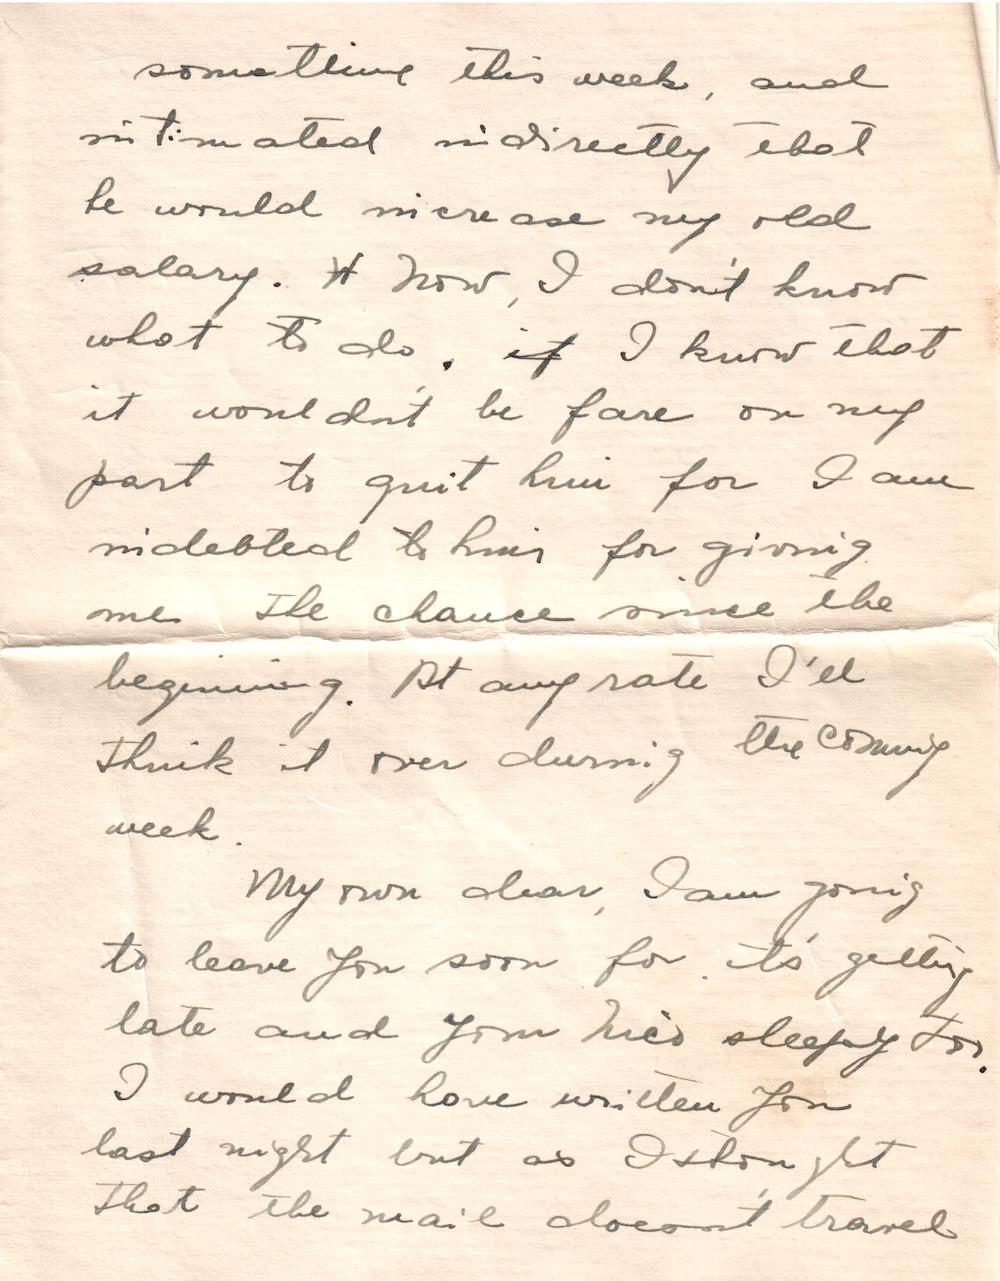 something this week, and
intimated indirectly that
he would increase my old
salary. # Now, I don't know
what to do. if I know that
it wouldn't be fare on my
part to quit him for I am
indebted to him for giving
me the chance since the
beginning. At any rate I'll
think it over during the coming
week.
My own dear, I am going
to leave you soon for it's getting
late and your Nic's sleepy too.
I would have written you
last night but as I thought
that the mail doesn't travel